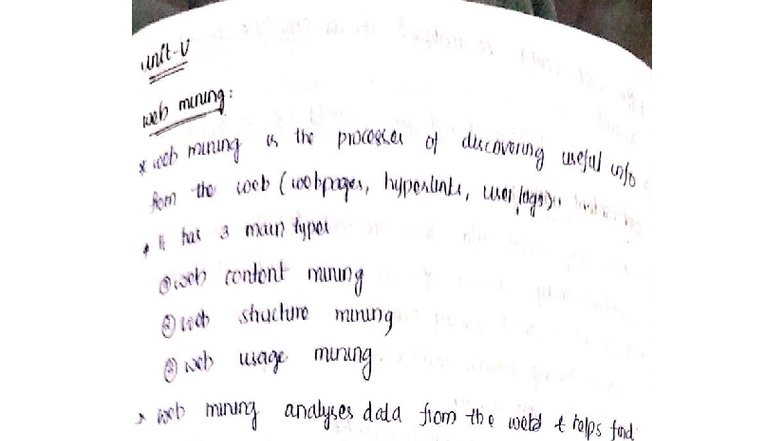 unit-V
web mining:
* web mining is the processes of discovering useful info
from the web (webpages, hyperlinks, user logs).
* It has 3 main types
① web content mining
② web structure mining
③ web usage mining
* web mining analyses data from the web & helps find